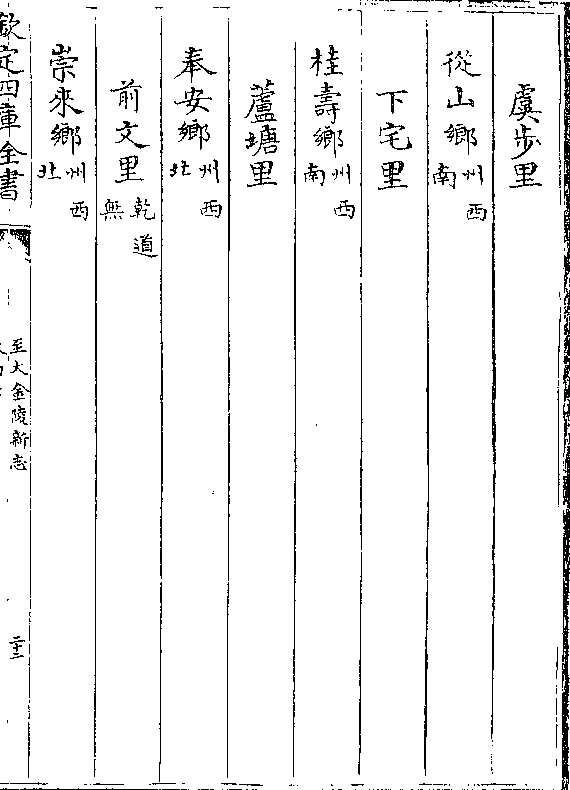 虞步里
從山鄉州西南
下宅里
桂壽鄉州西南
蘆塘里
奉安鄉州西北
前文里乾道無
崇來鄉州西北
欽定四庫全書
至大金陵新志
二十二